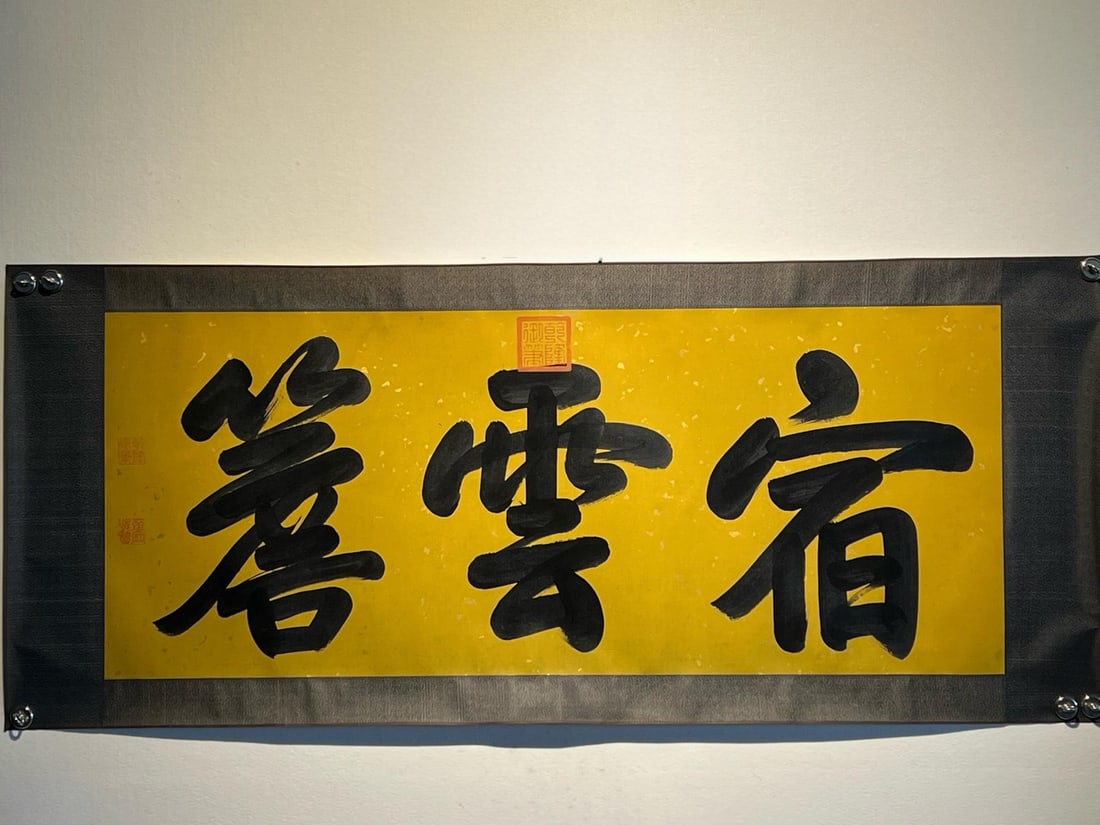 宿雲簷
乾隆御筆